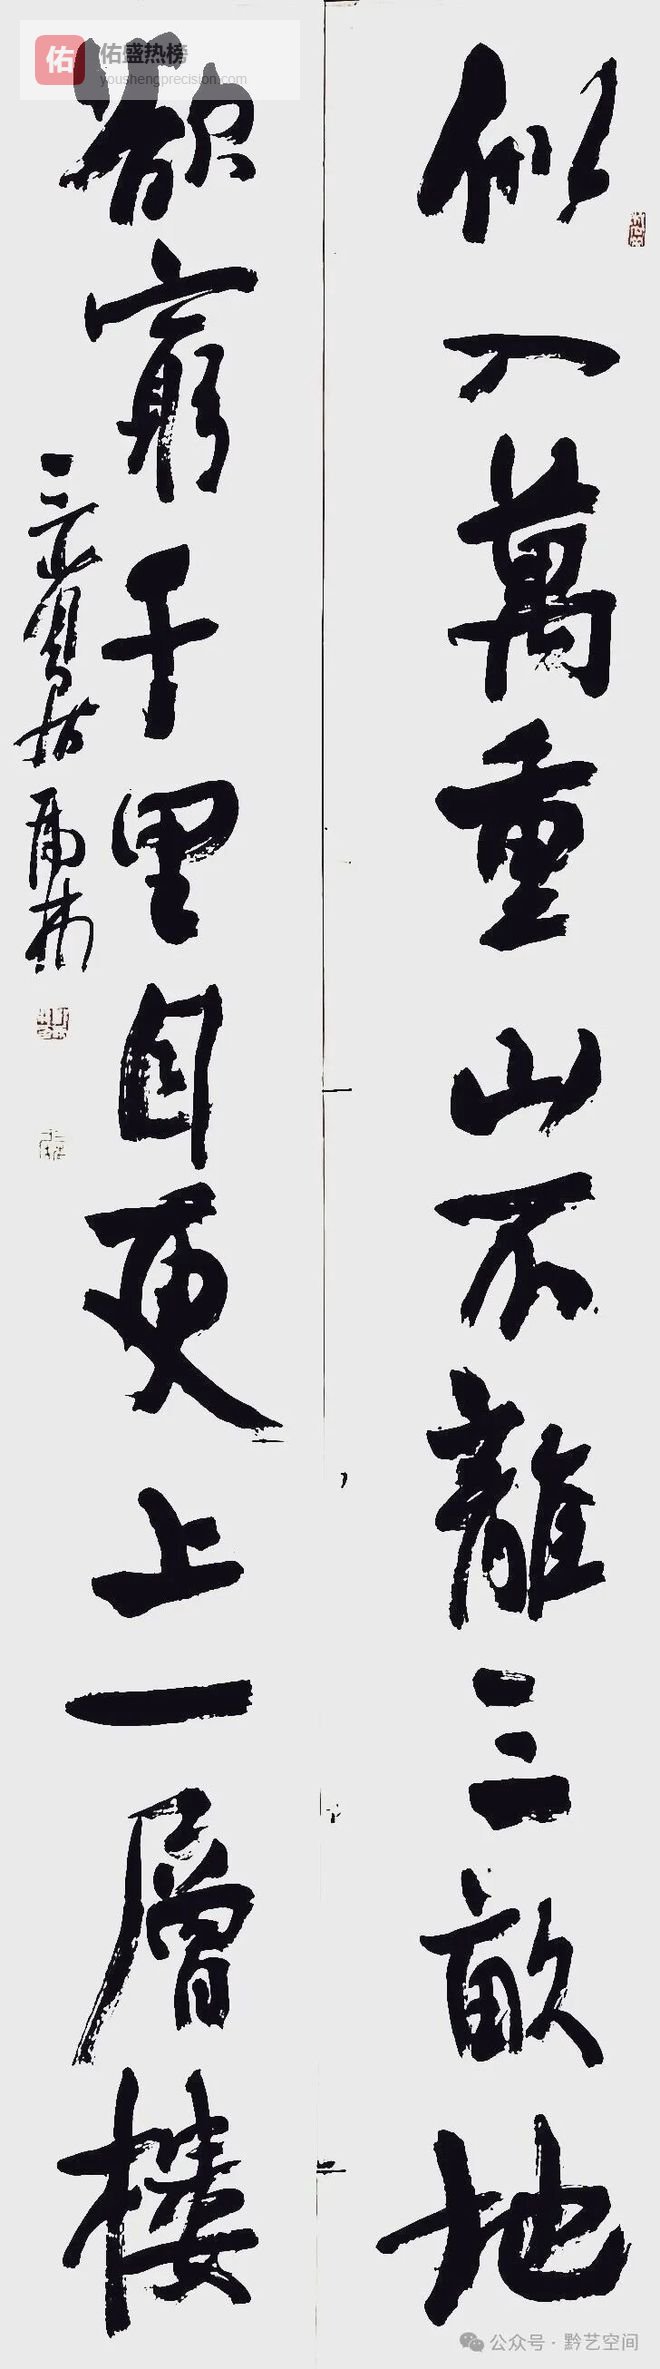 佑
佑盛热榜
youshengprecision.com
似入萬重山不離三畝地
欲窮千里目更上一層樓
公众号·黔艺空间